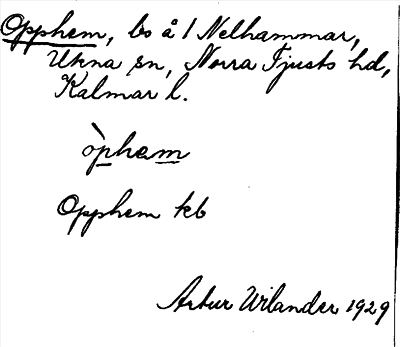 Opphem, ls å 1 Nelhammar,
Ukna sn, Norra Tjusts hd,
Kalmar l.
òphem
Opphem kb
Artur Wilander 1929